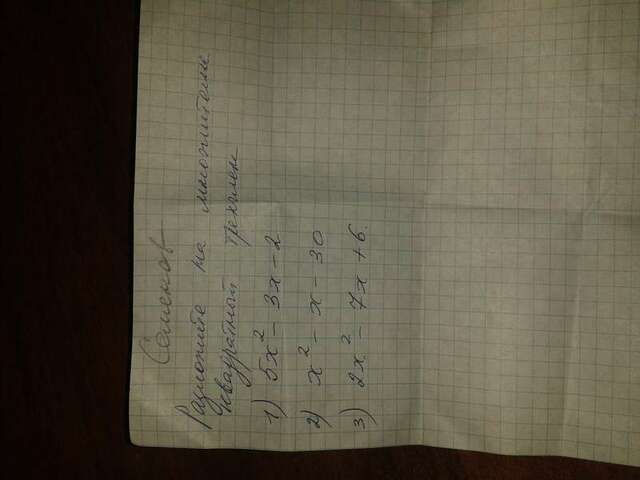 Семенов
Разложите на множители
квадратный трехчлен
1) 5x² - 3x - 2
2) x² - x - 30
3) 2x² - 7x + 6.